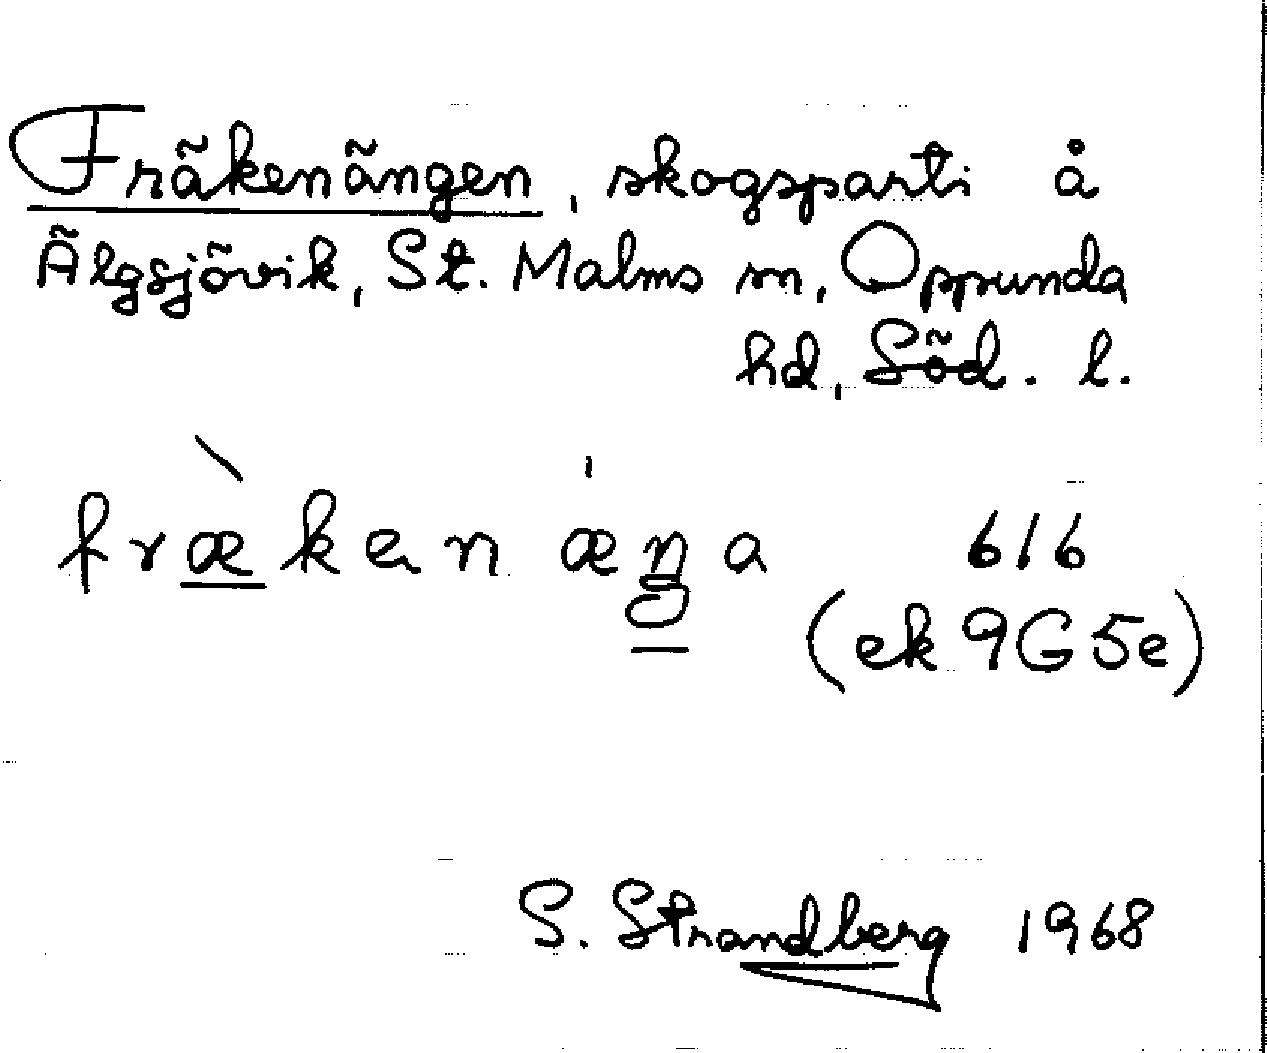 Fräkenängen, skogsparti å
Älgsjövik, St. Malms sn, Oppunda
hd, Söd. l.
frækenæŋa 616
(ek 9G5e)
S. Strandberg 1968